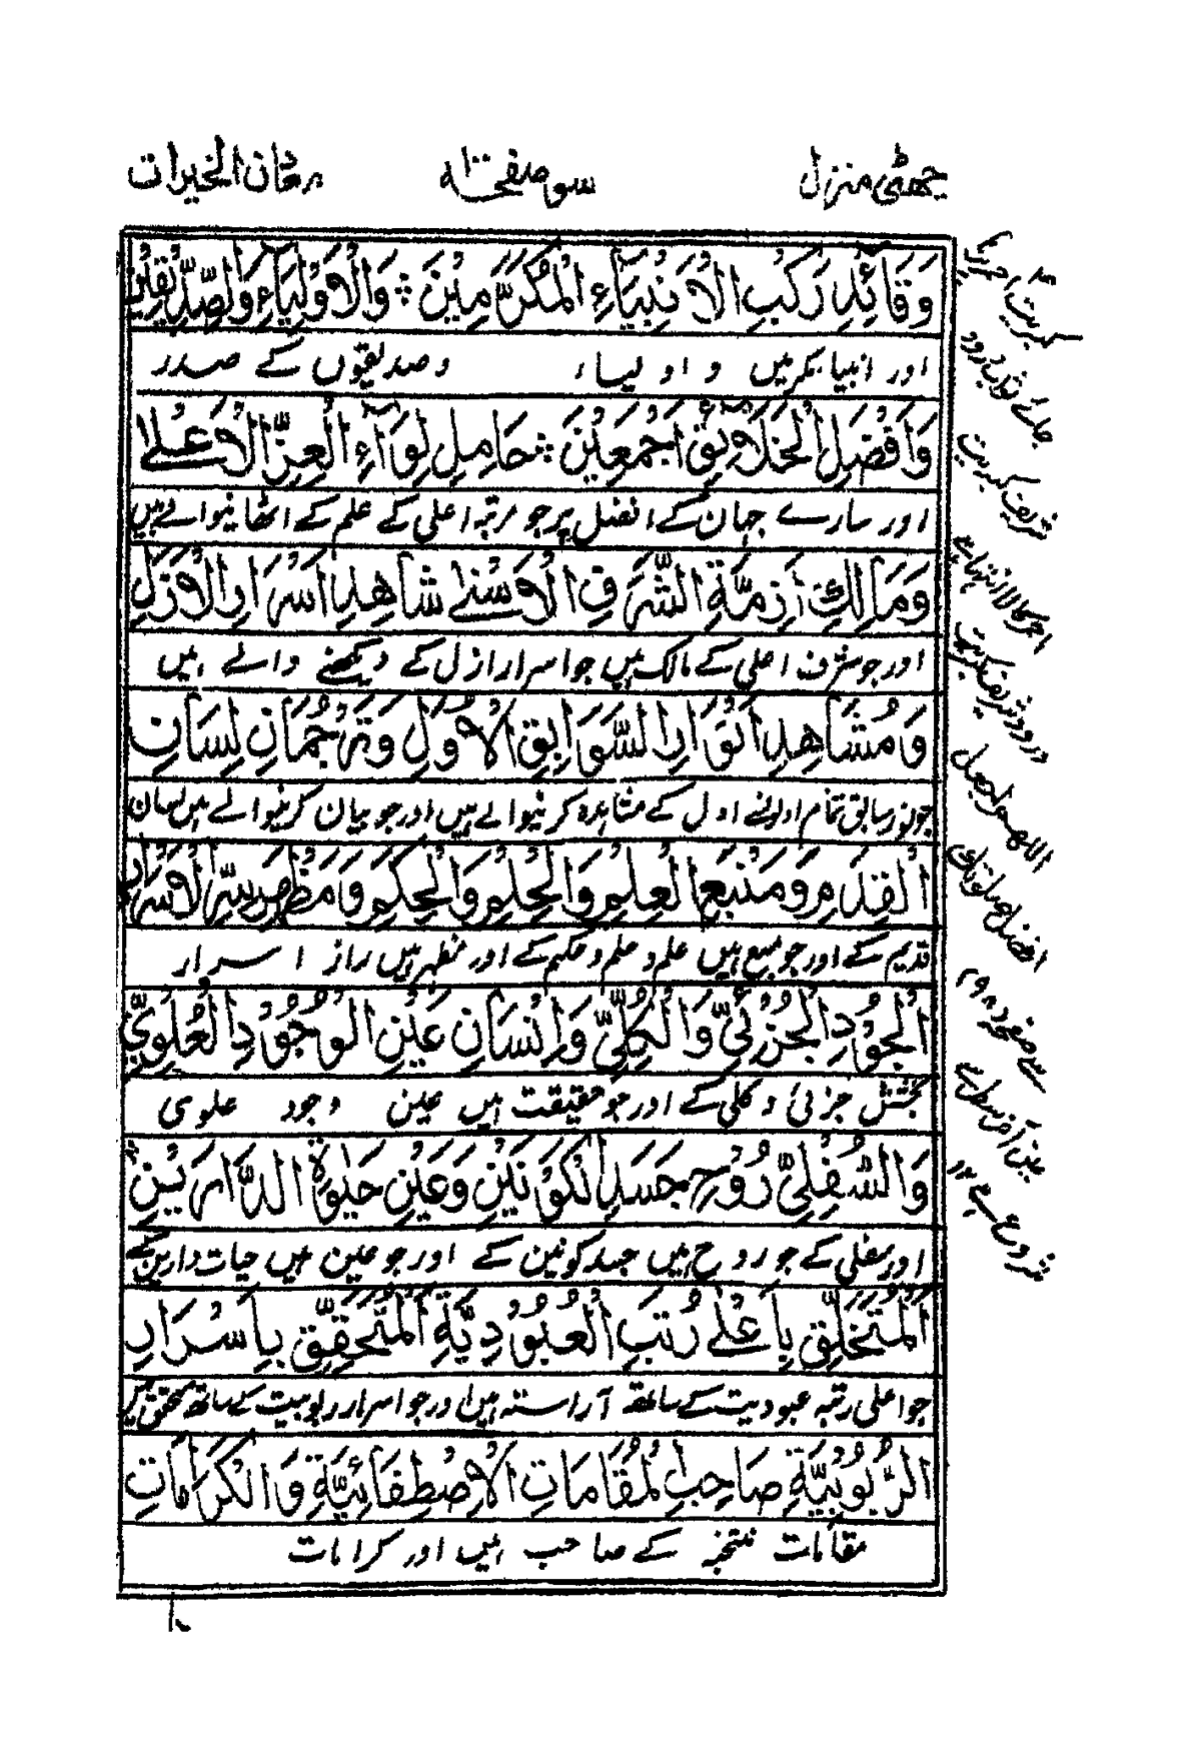 چھٹی منزل سو صفحہ ۱۰۰ برهان الخیرات
وَقَائِدِ رَكْبِ الْاَنْبِيَآءِ الْمُكَرَّمِيْنَ ؞ وَالْاَوْلِيَآءِ وَالصِّدِّيْقِيْنَ
اور انبیا بکرمیں و اولیاء و صدیقوں کے صدر
وَاَفْضَلِ الْخَلَآئِقِ اَجْمَعِيْنَ ؞ حَامِلِ لِوَآءِ الْعِزِّ الْاَعْلٰے
اور سارے جہان کے افضل پر جو رتبہ اعلی کے علم کے اٹھانیوالے ہیں
وَمَالِكِ اَزِمَّةِ الشَّرَفِ الْاَسْنٰے شَاهِدِ اَسْرَارِ الْاَزَلِ
اور جو شرف اعلی کے مالک ہیں جو اسرار ازل کے دیکھنے والے ہیں
وَمُشَاهِدِ اَنْوَارِ السَّوَابِقِ الْاُوَلِ وَتَرْجُمَانِ لِسَانِ
جو نور سابق تمام اولونے اول کے مشاہدہ کرنیوالے ہیں اور جو بیان کرنیوالے ہیں لسان
الْقِدَمِ وَمَنْبَعِ الْعِلْمِ وَالْحِلْمِ وَالْحِكَمِ وَمَظْهَرِ سِرِّ الْاَسْرَارِ
قدیم کے اور جو منبع ہیں علم و حلم و حکم کے اور مظہر ہیں راز اسرار
الْجُوْدِ الْجُزْئِيِّ وَالْكُلِّيِّ وَاِنْسَانِ عَيْنِ الْوُجُوْدِ الْعُلْوِيِّ
بخشش جزئی و کلی کے اور جو حقیقت ہیں عین وجود علوی
وَالسُّفْلِيِّ رُوْحِ جَسَدِ الْكَوْنَيْنِ وَعَيْنِ حَيٰوةِ الدَّارَيْنِ
اور سفلی کے جو روح ہیں جسد کونین کے اور جو عین ہیں حیات دارین کے
الْمُتَخَلِّقِ بِاَعْلٰے رُتَبِ الْعُبُوْدِيَّةِ الْمُتَحَقِّقِ بِاَسْرَارِ
جو اعلی رتبہ عبودیت کے ساتھ آراستہ ہیں اور جو اسرار ربوبیت کے ساتھ محقق ہیں
الرُّبُوْبِيَّةِ صَاحِبِ الْمَقَامَاتِ الْاِصْطِفَائِيَّةِ وَالْكَرَامَاتِ
مقامات منتخبہ کے صاحب ہیں اور کرامات
شریف کبریت
احمر کا انتہا ہے
درود شریف کبریت
اللهم اجعل
افضل صلوتك
سے صفحہ ۹۸ میں
شروع ہے ۱۲